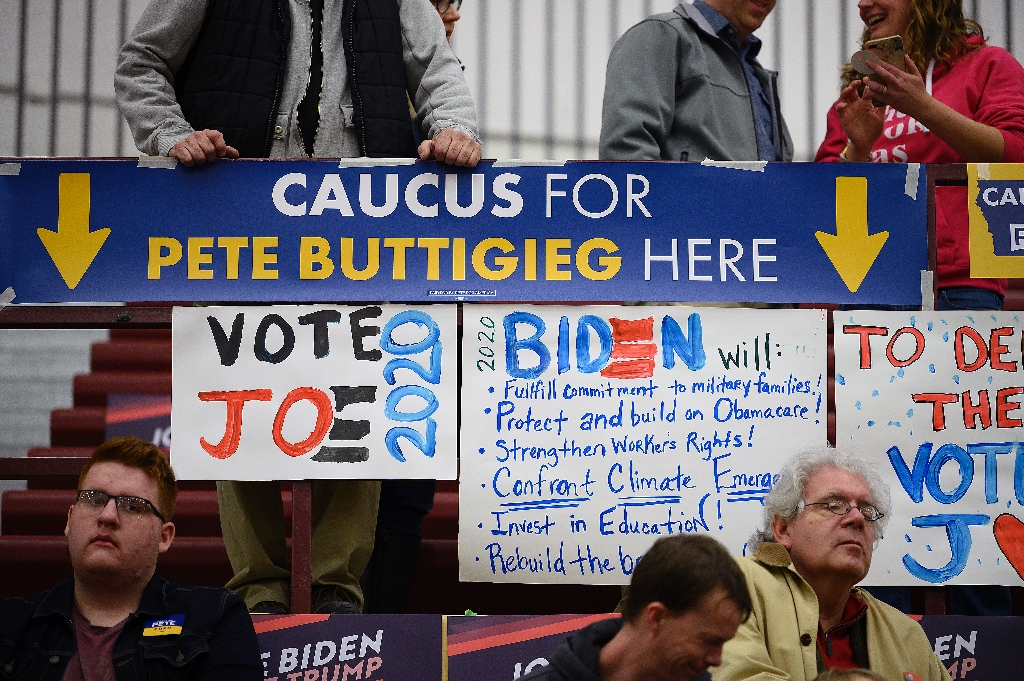 CAUCUS FOR
PETE BUTTIGIEG HERE
VOTE
JOE
2020
2020 BIDEN will:
• Fullfill commitment to military families!
• Protect and build on Obamacare!
• Strengthen Worker's Rights!
• Confront Climate Emerge
• Invest in Education!
• Rebuild the
TO
THE
VOT
J
PETE
BIDEN
TRUMP